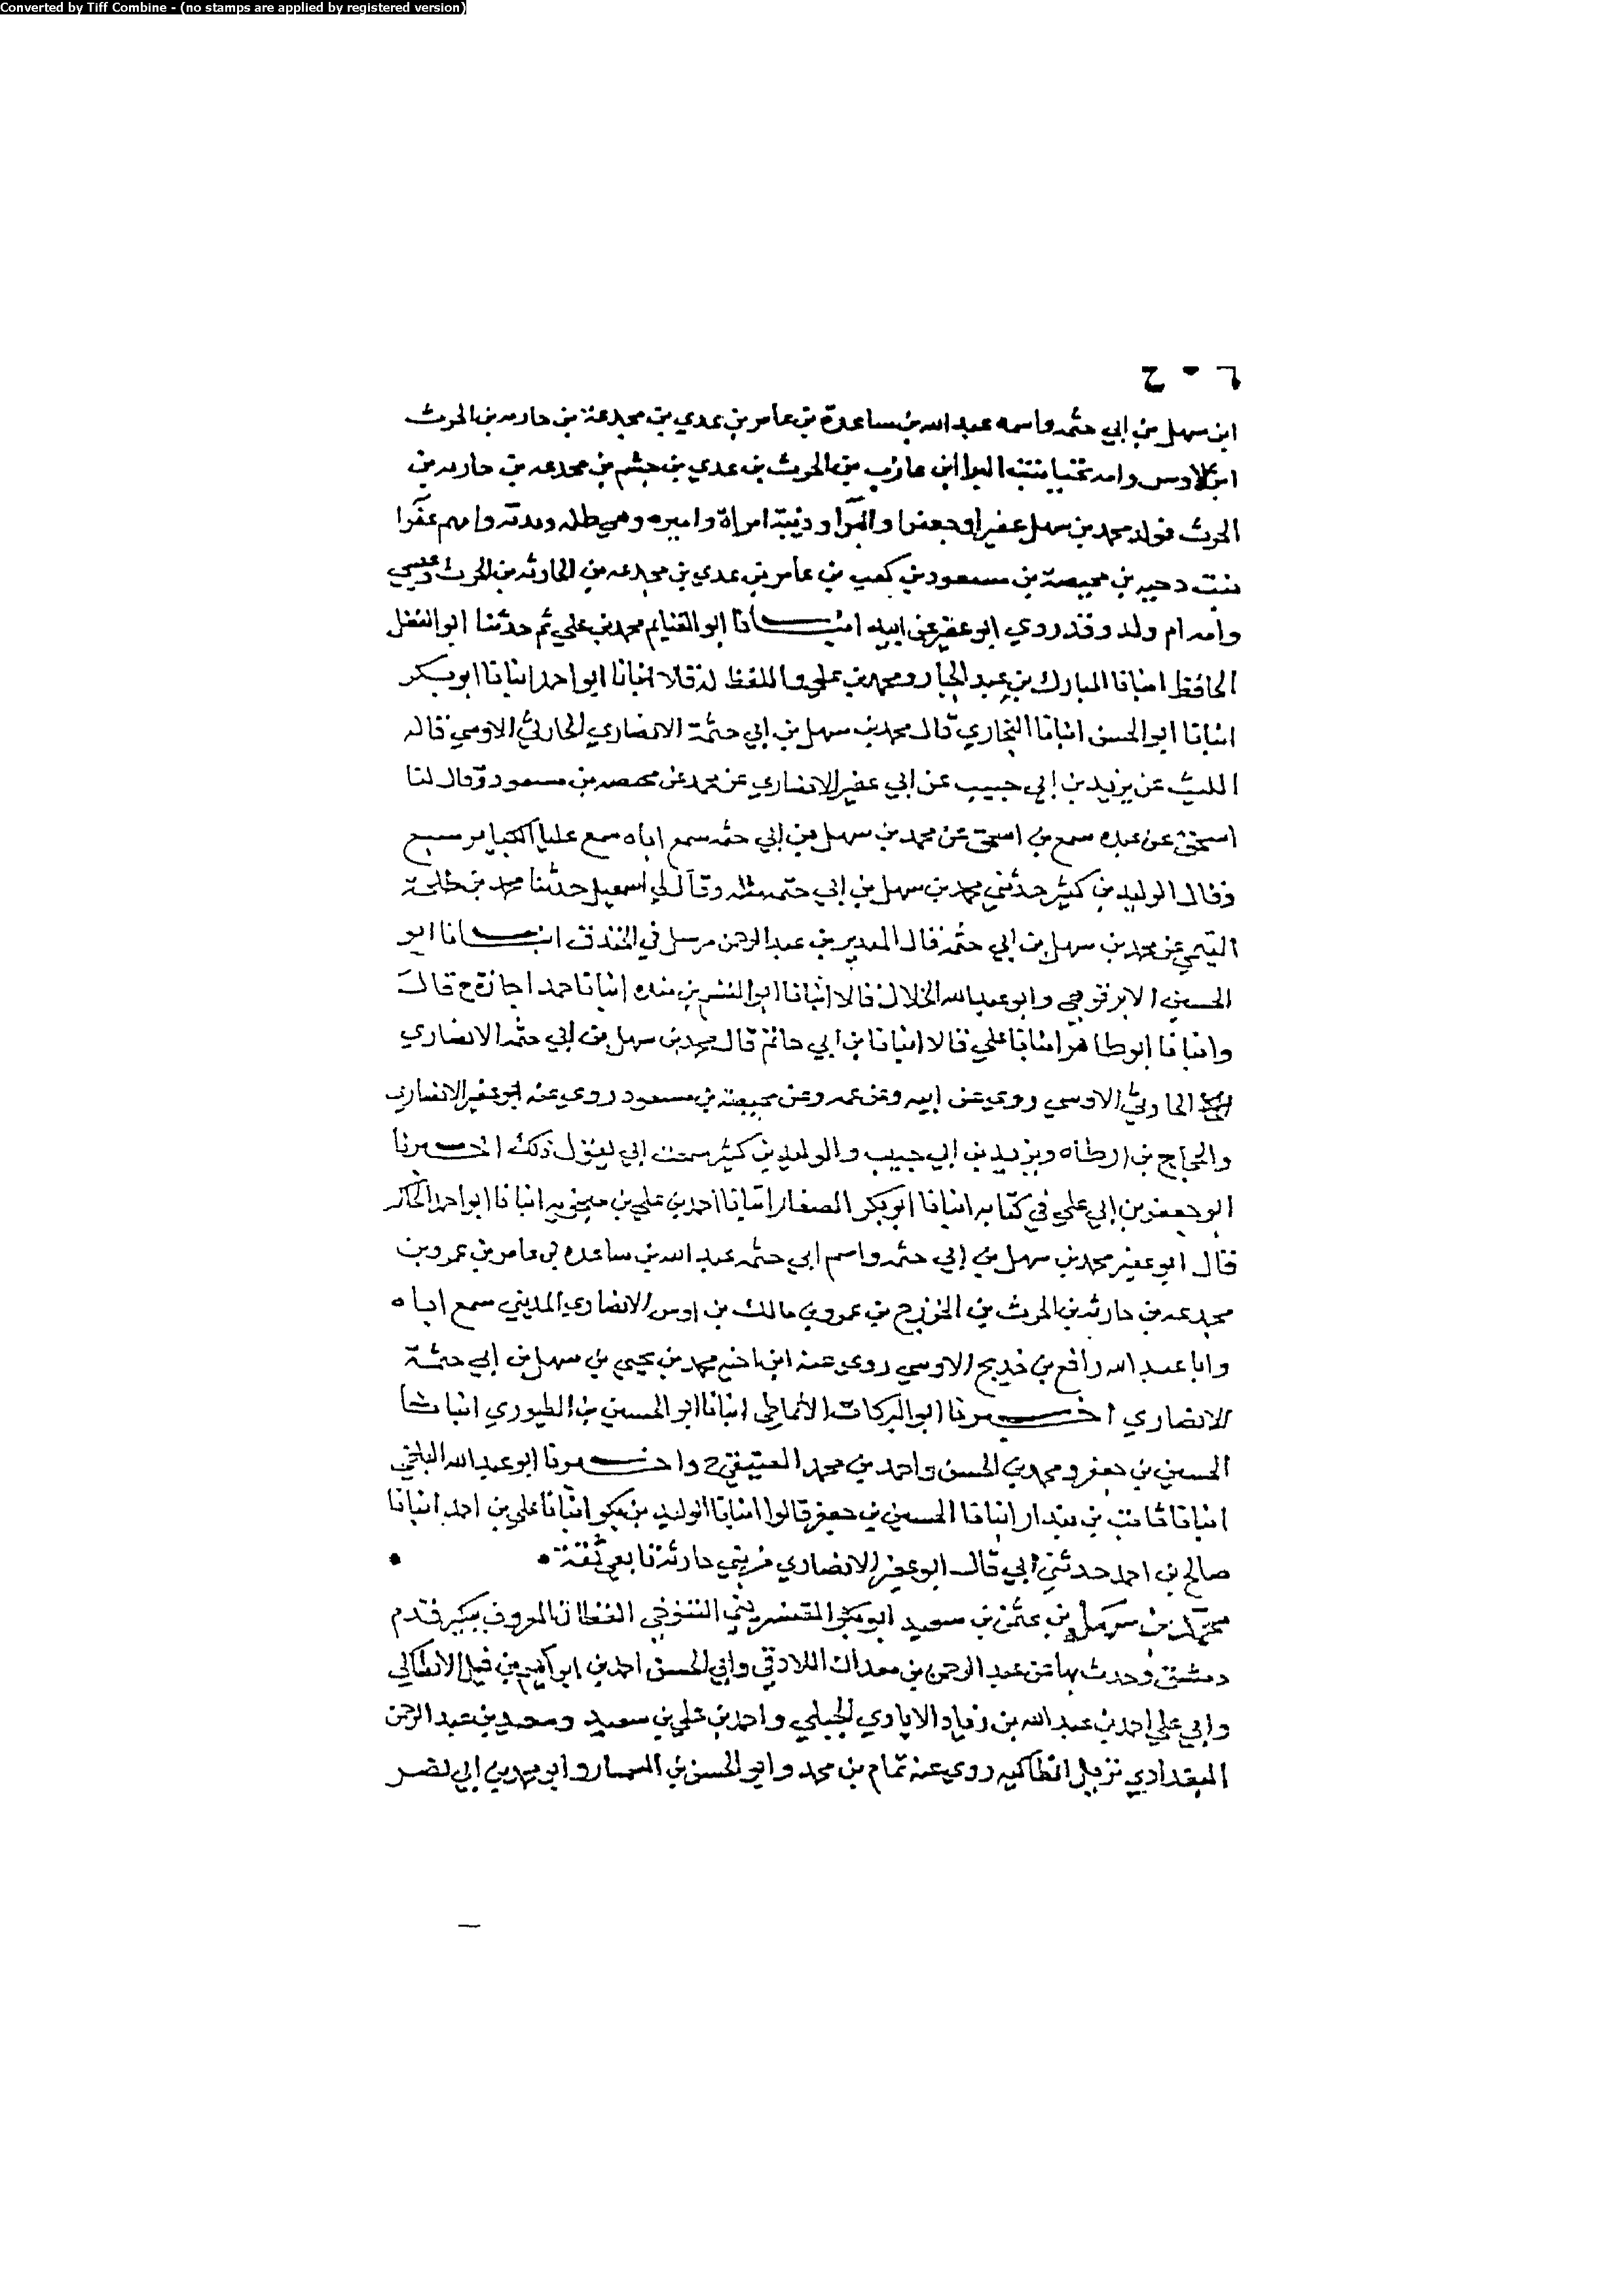 Converted by Tiff Combine - (no stamps are applied by registered version)
ابن سهل بن ابي حثمه واسمه عبد الله بن ساعدة بن عامر بن عدي بن مجدعة بن حارثه بن الحرث
ابن الاوس وامه تحيا بنت البرا ابن عازب بن الحرث بن عدي بن جشم بن مجدعه بن حارثه بن
الحرث فولد محمد بن سهل عفيرا وجعفرا والبرا ودنية امراة واميره وهي طله وبدنه وامهم عفرا
بنت دحيه بن محيصة بن مسعود بن كعب بن عامر بن عدي بن مجدعه بن الحارثه بن الحرث وعيسي
وامه ام ولد وقد روي ابو عفير عن ابيه انبانا ابو الغنايم محمد بن علي ثم حدثنا ابو الفضل
الحافظ انبانا المبارك بن عبد الجبار ومحمد بن علي واللفظ له قالا انبانا ابو احمد انبانا ابو بكر
انبانا ابو الحسن انبانا البخاري قال محمد بن سهل بن ابي حثمة الانصاري الحارثي الاوسي قاله
الليث عن يزيد بن ابي حبيب عن ابي عفير الانصاري عن محمد عن محيصه بن مسعود وقال لنا
اسحق عن عبده سمع بن اسحق عن محمد بن سهل بن ابي حثمه سمع اباه سمع عليا الكبايرسبع
وقال الوليد بن كثير حدثني محمد بن سهل بن ابي حثمه مثله وقال لي اسمعيل حدثنا محمد بن طلحة
التيمي عن محمد بن سهل بن ابي حثمه قال المدير بن عبد الرحمن مرسل في الخندق انبانا ابو
الحسين الابرقوهي وابو عبد الله الخلال قالا انبانا ابو القسم بن منده انبانا حمد اجازة ح قال
وانبانا ابو طاهر انبانا علي قالا انبانا بن ابي حاتم قال محمد بن سهل بن ابي حثمه الانصاري
الحارثي الاوسي روي عن ابيه وعن عمه وعن محيصة بن مسعود روي عنه ابو عفير الانصاري
والحجاج بن ارطاه ويزيد بن ابي حبيب والوليد بن كثير سمعت ابي يقول ذلك اخبرنا
ابو جعفر بن ابي علي في كتابه انبانا ابو بكر الصفار انبانا احمد بن علي بن منجويه انبانا ابو احمد الحاكم
قال ابو عفير محمد بن سهل بن ابي حثمه واسم ابي حثمه عبد الله بن ساعده بن عامر بن عمرو بن
مجدعه بن حارثه بن الحرث بن الخزرج بن عمرو بن مالك بن اوس الانصاري المديني سمع اباه
وابا عبد الله رافع بن خديج الاوسي روي عنه ابن اخيه محمد بن يحيي بن سهل بن ابي حثمة
الانصاري اخبرنا ابو البركات الانماطي انبانا ابو الحسين بن الطيوري انبانا
الحسين بن جعفر ومحمد بن الحسن واحمد بن محمد العتيقي ح واخبرنا ابو عبد الله البلخي
انبانا ثابت بن بندار انبانا الحسين بن جعفر قالوا انبانا الوليد بن بكر انبانا علي بن احمد انبانا
صالح بن احمد حدثني ابي قال ابو عفير الانصاري من بني حارثة تابعي ثقة
محمد بن سهل بن عثمن بن سعيد ابو بكر القنسريني التنوخي القطان المعروف ببكير قدم
دمشق وحدث بها عن عبد الرحمن بن معدان اللادقي وابي الحسن احمد بن ابراهيم بن فيل الانطاكي
وابي علي احمد بن عبد الله بن زياد الايادي الجبلي واحمد بن علي بن سعيد ومحمد بن عبد الرحمن
البغدادي نزيل انطاكيه روي عنه تمام بن محمد وابو الحسن بن السمسار وابو محمد بن ابي نصر